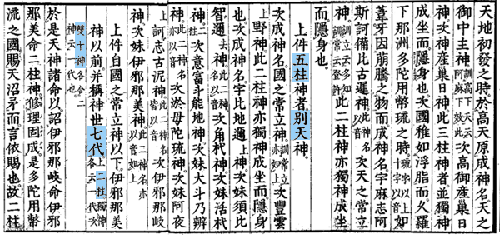 天地初發之時於高天原成神名天之
御中主神訓高下天云阿麻下效此次高御産巢日
神次神産巢日神此三柱神者並獨神
成坐而隱身也次國稚如浮脂而久羅
下那洲多陀用幣琉之時琉字以上十字以音如
葦牙因萌騰之物而成神名宇麻志阿
斯訶備比古遲神此神名以音次天之常立
神訓常云登許訓立云多知此二柱神亦獨神成坐
而隱身也
上件五柱神者別天神
次成神名國之常立神訓常立亦如上次豊雲
野神此二柱神亦獨神成坐而隱身
也次成神名宇比地邇上神次妹須比
智邇去神此二神名以音次角杙神次妹活杙
神二柱次意富斗能地神次妹大斗乃辨
神此二神名亦以音次於母陀琉神次妹阿夜
上訶志古泥神此二神名皆以音次伊邪那岐
神次妹伊邪那美神此二神名亦以音如上
上件自國之常立神以下伊邪那美
神以前并稱神世七代上二柱獨神各云一代次
雙十神各合二神云一代也
於是天神諸命以詔伊邪那岐命伊邪
那美命二柱神修理固成是多陀用幣
流之國賜天沼矛而言依賜也故二柱